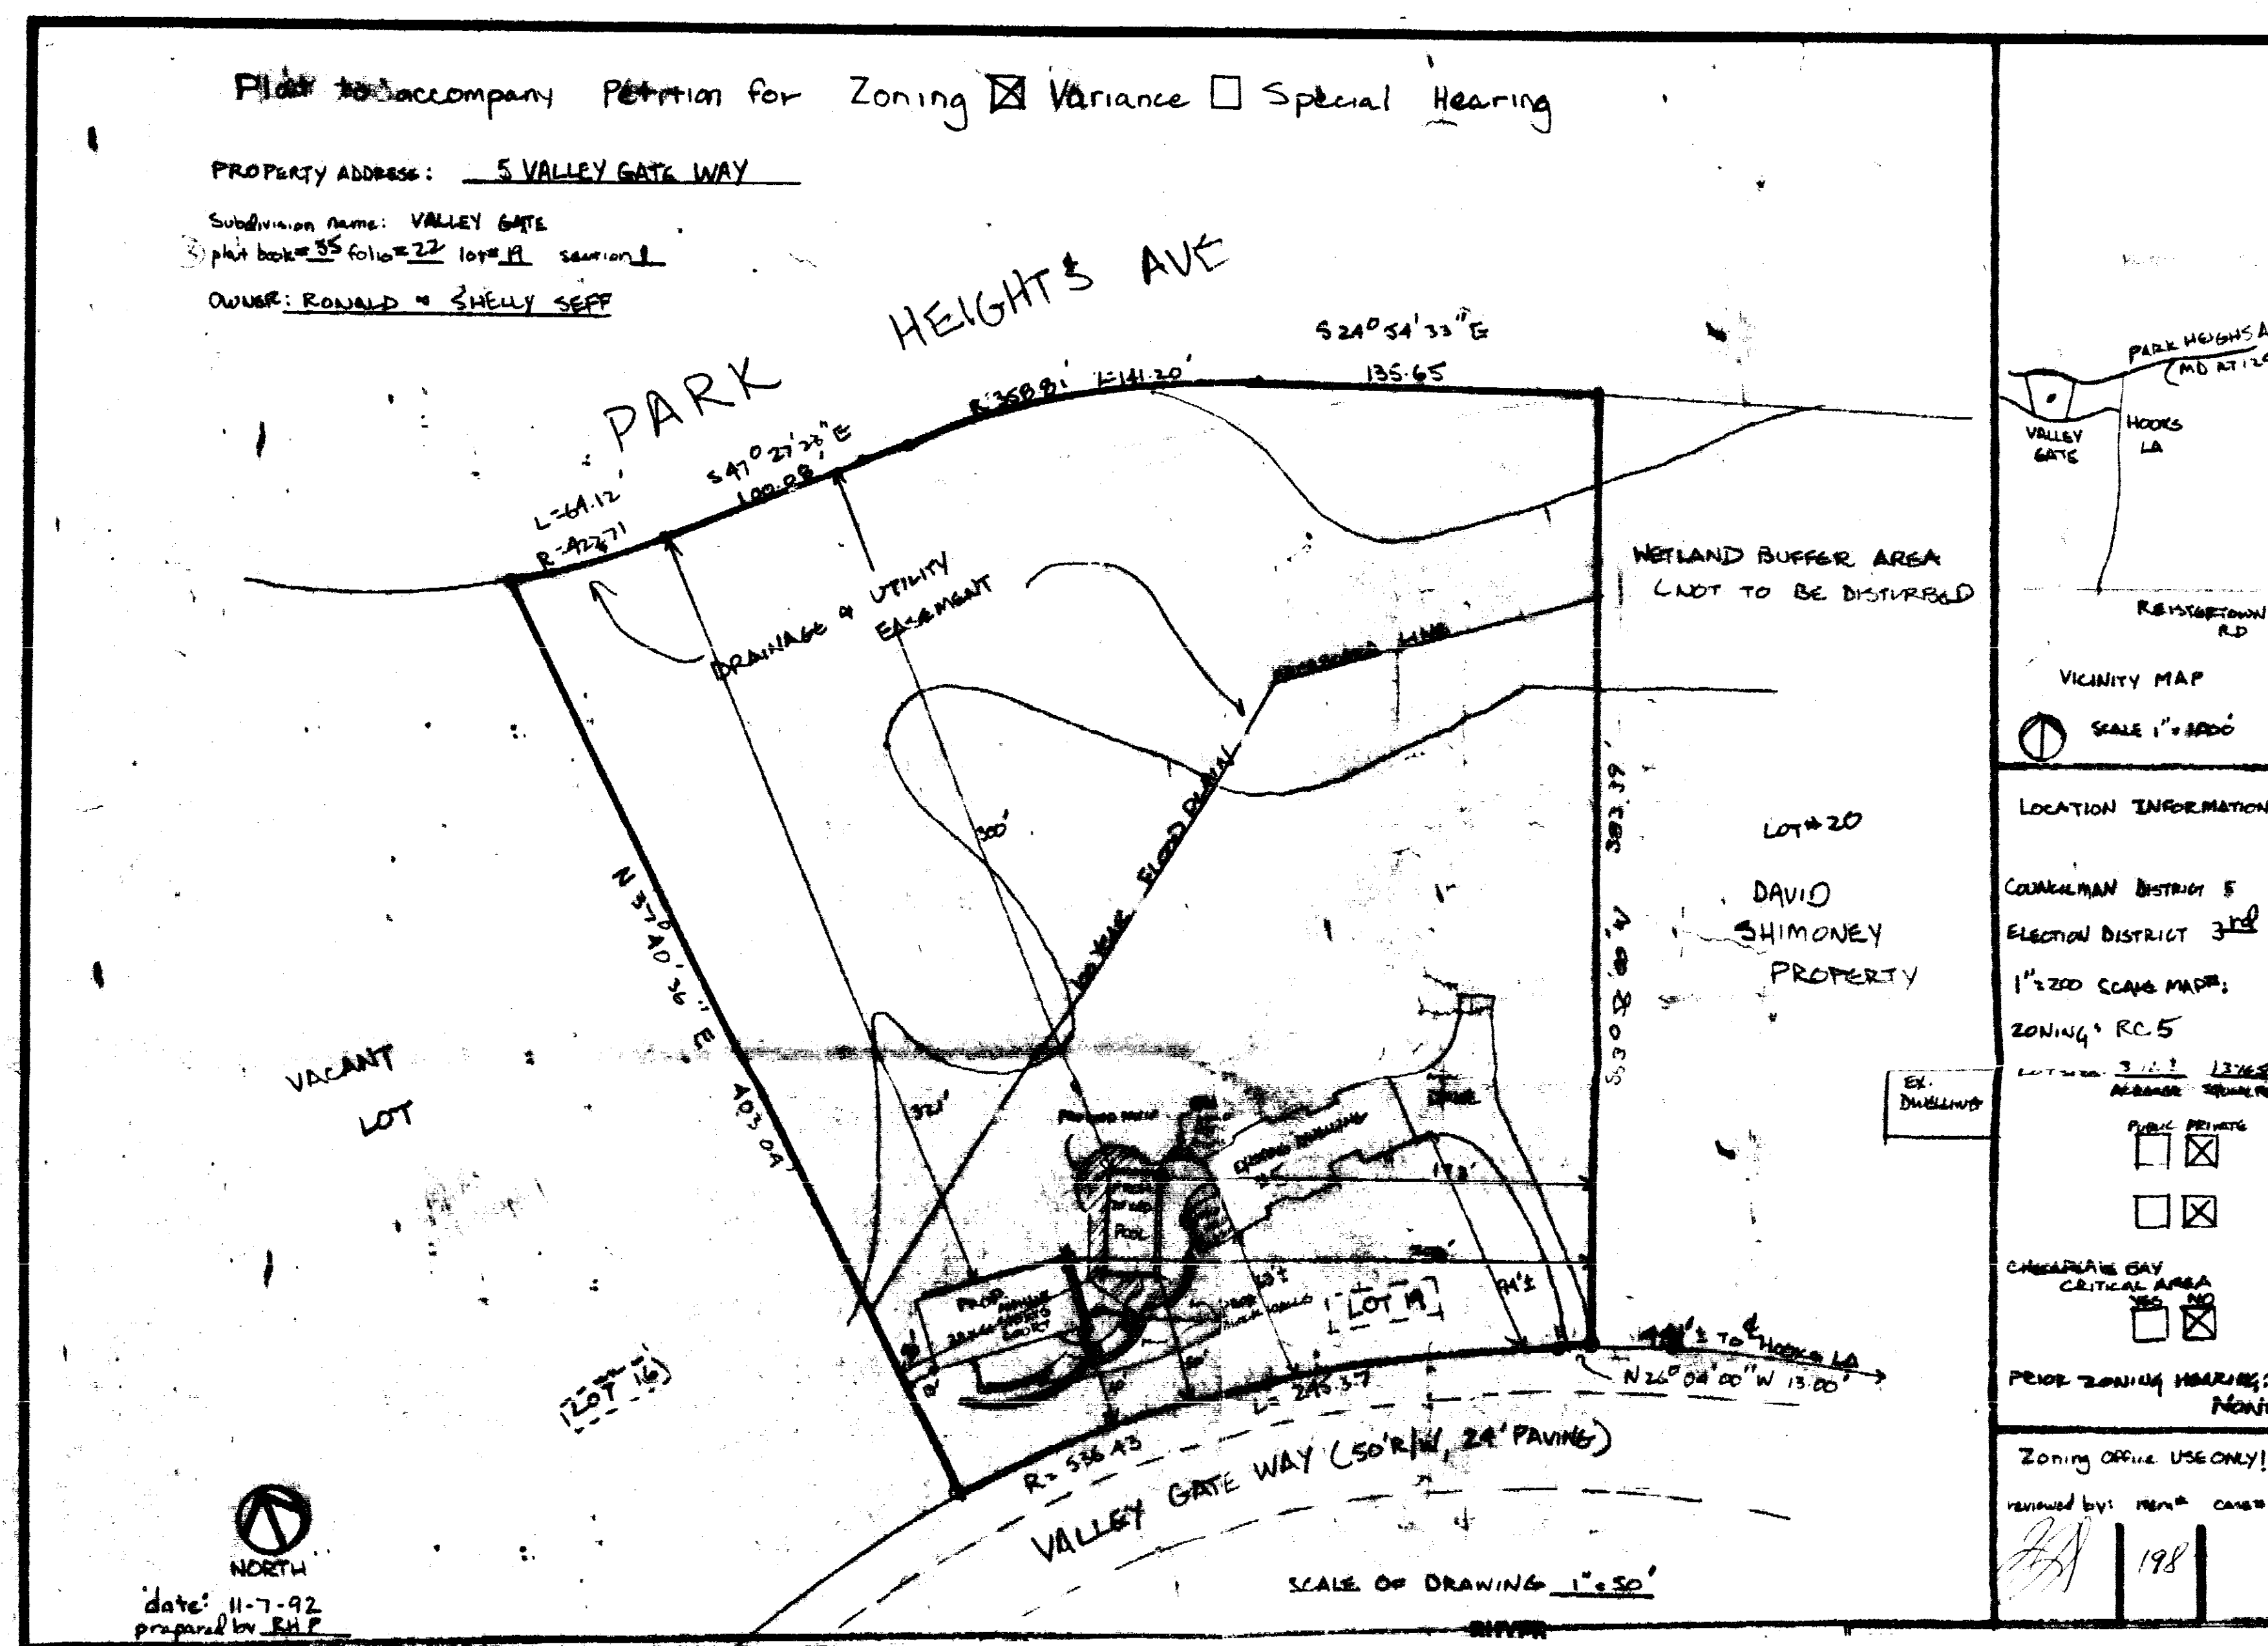 Plat to accompany Petition for Zoning ☒ Variance ☐ Special Hearing
PROPERTY ADDRESS: 5 VALLEY GATE WAY
Subdivision name: VALLEY GATE
plat book# 35 folio# 22 lot# 19 section 1
OWNER: RONALD & SHELLY SEFF
PARK HEIGHTS AVE
S 24° 54' 33" E
135.65
R=358.81' L=141.20'
S 47° 27' 23" E
100.08'
L=64.12'
R=422.71
DRAINAGE & UTILITY
EASEMENT
WETLAND BUFFER AREA
(NOT TO BE DISTURBED
300'
100 YEAR FLOOD PLAIN
383.39'
LOT # 20
DAVID
SHIMONEY
PROPERTY
N 37° 40' 36" E
403.04'
VACANT
LOT
321'
EX.
DWELLING
EXISTING DWELLING
173'
POOL
PROP.
COURT
94'±
LOT 19
LOT 16
TO ℄ HOOKS LA
N 26° 04' 00" W 13.00'
R= 536.43
L= 245.37
VALLEY GATE WAY (50' R/W, 24' PAVING)
NORTH
date: 11-7-92
prepared by RHP
SCALE OF DRAWING 1"=50'
PARK HEIGHS A
(MD RT 12
VALLEY
GATE
HOOKS
LA
REISTERTOWN
RD
VICINITY MAP
SCALE 1"=1000'
LOCATION INFORMATION
COUNCILMAN DISTRICT
ELECTION DISTRICT 3rd
1"=200 SCALE MAP#:
ZONING: RC 5
ACREAGE
PUBLIC PRIVATE
☐ ☒
☐ ☒
CHESAPEAKE BAY
CRITICAL AREA
YES NO
☐ ☒
PRIOR ZONING HEARING:
Zoning Office USE ONLY!
reviewed by: item# case#
198